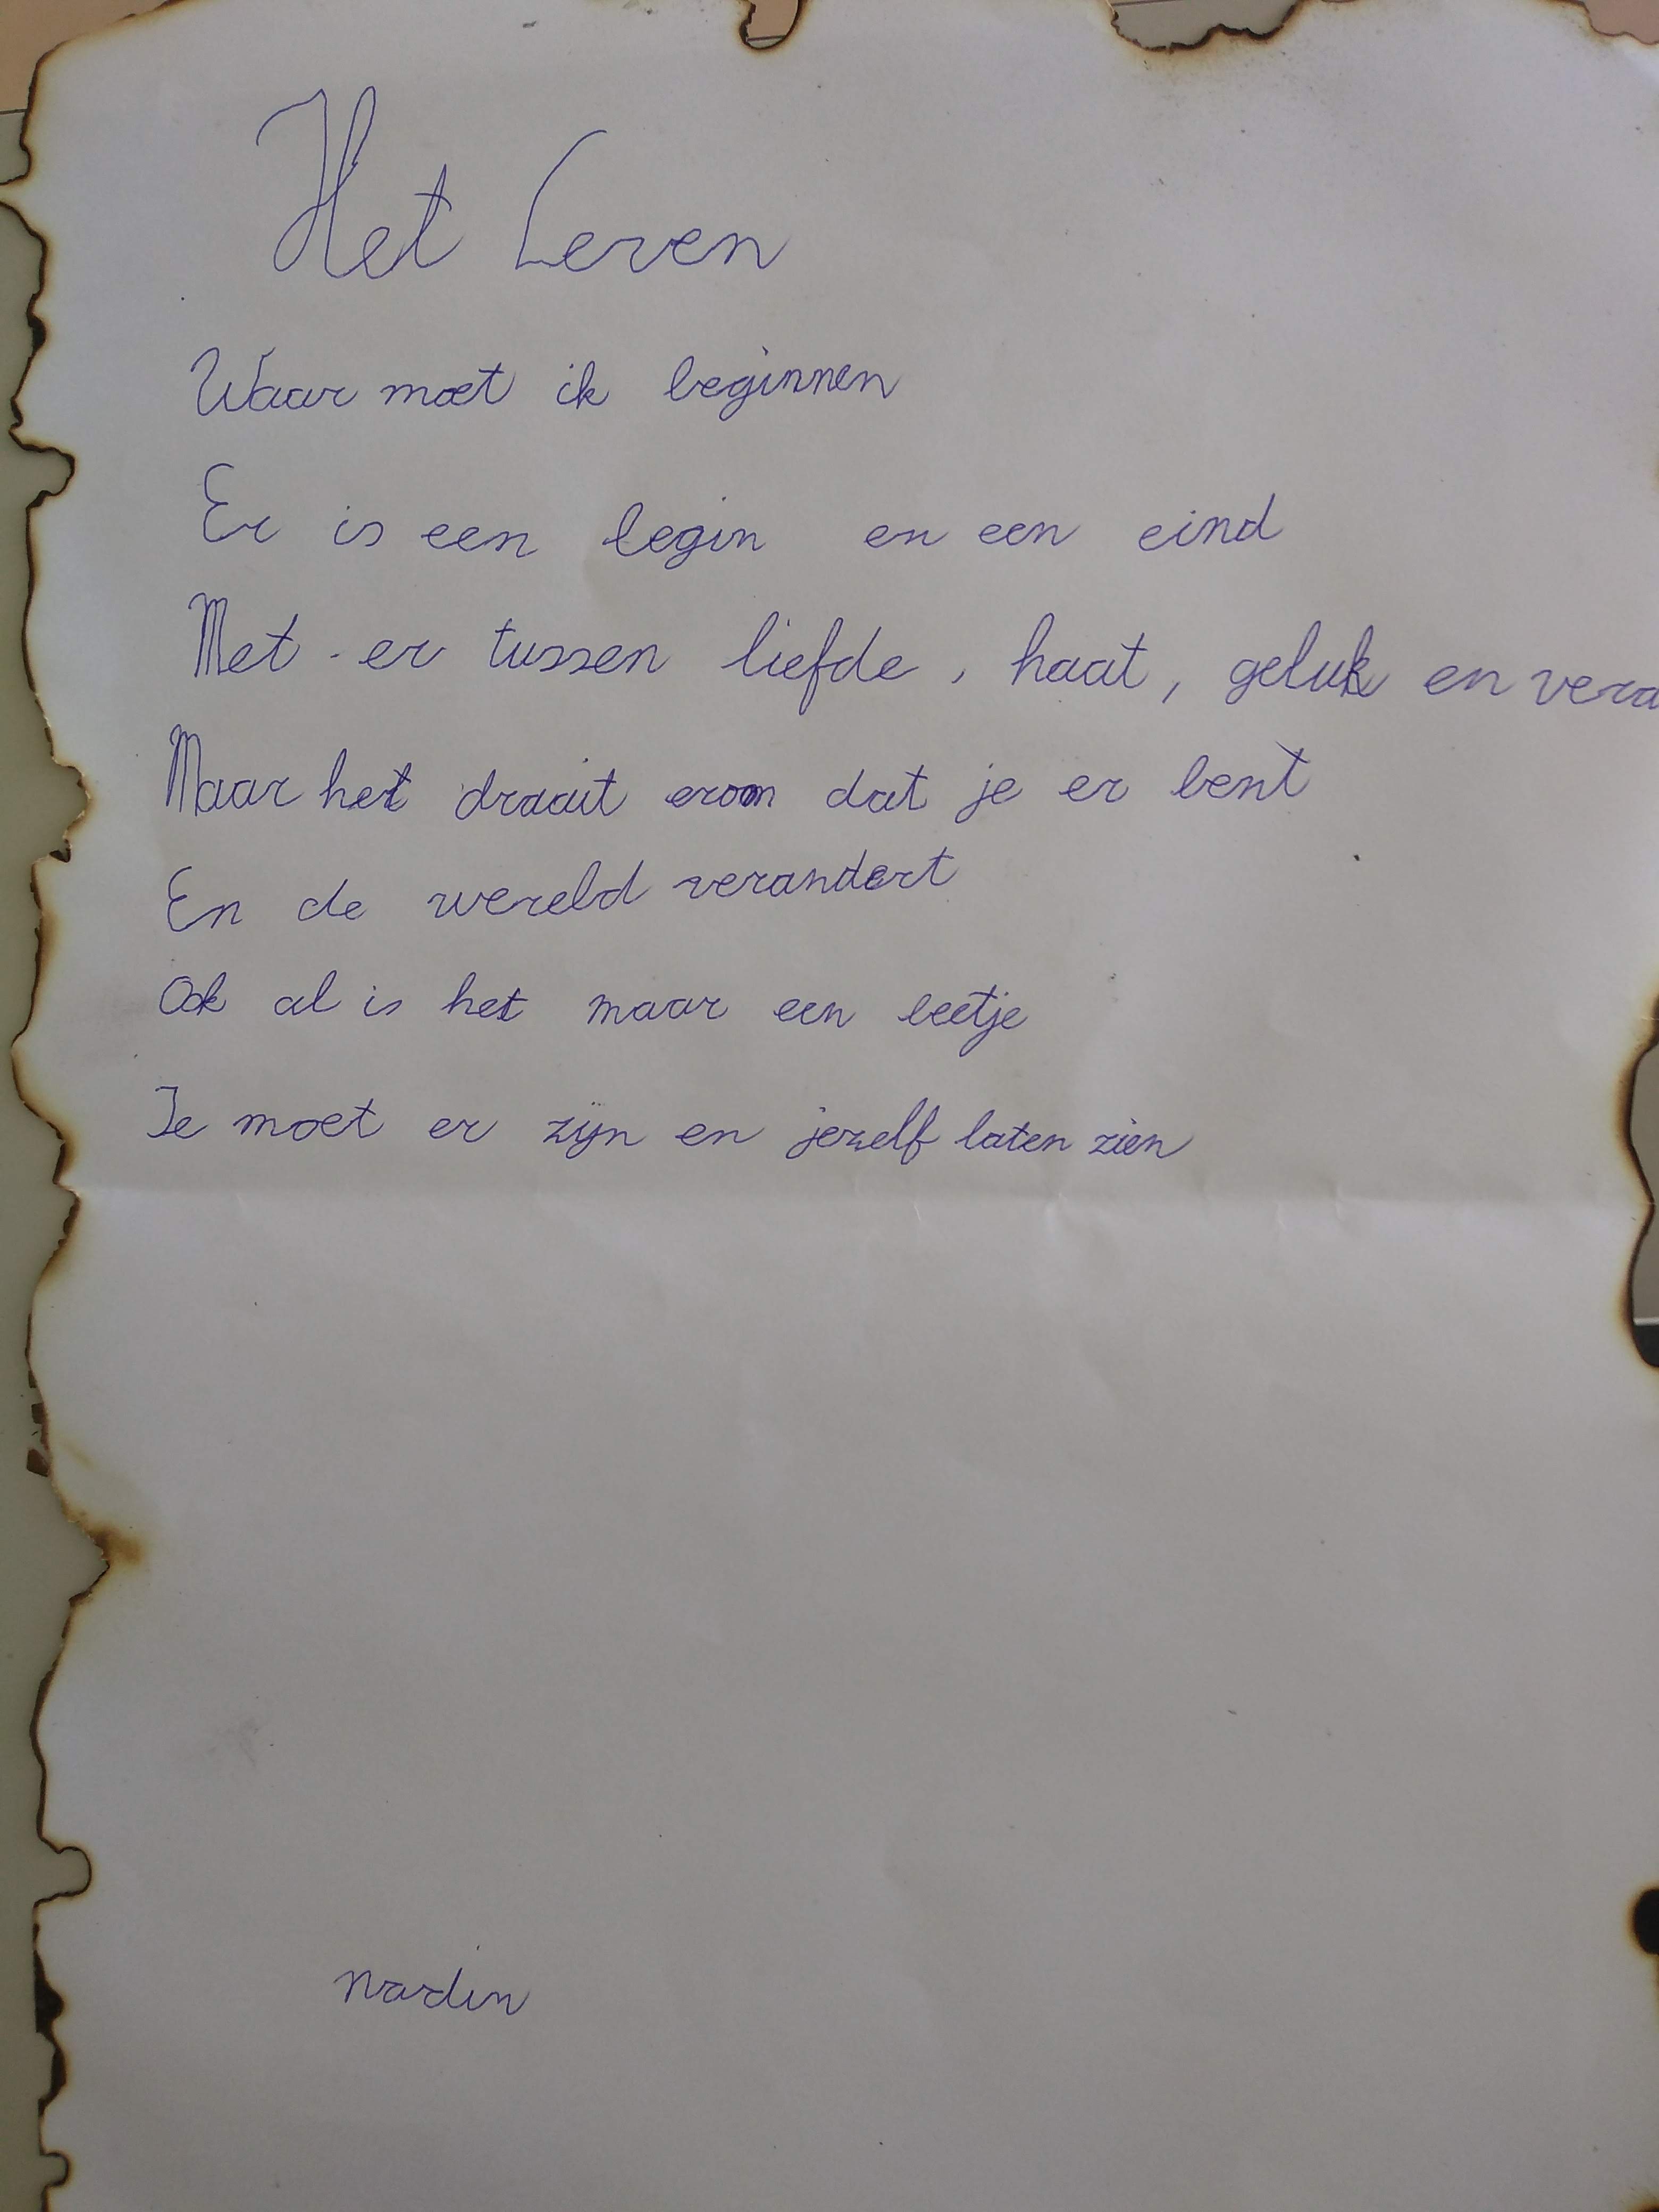 Het Leven
Waar moet ik beginnen
Er is een begin en een eind
Met er tussen liefde, haat, geluk en
Maar het draait erom dat je er bent
En de wereld verandert
Ook al is het maar een beetje
Je moet er zijn en jezelf laten zien
nardin